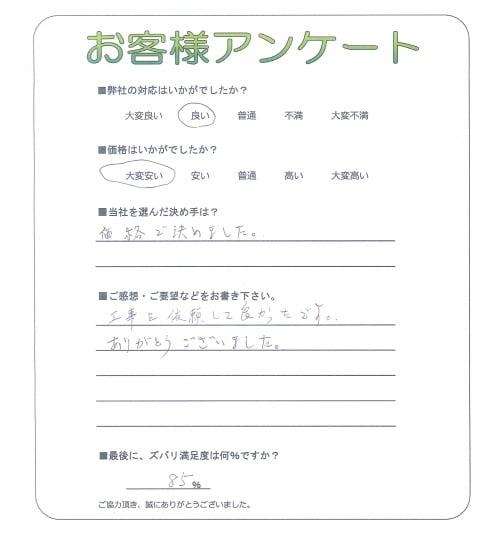 お客様アンケート
■弊社の対応はいかがでしたか？
大変良い 良い 普通 不満 大変不満
■価格はいかがでしたか？
大変安い 安い 普通 高い 大変高い
■当社を選んだ決め手は？
価格で決めました。
■ご感想・ご要望などをお書き下さい。
工事を依頼して良かったです。
ありがとうございました。
■最後に、ズバリ満足度は何%ですか？
85%
ご協力頂き、誠にありがとうございました。